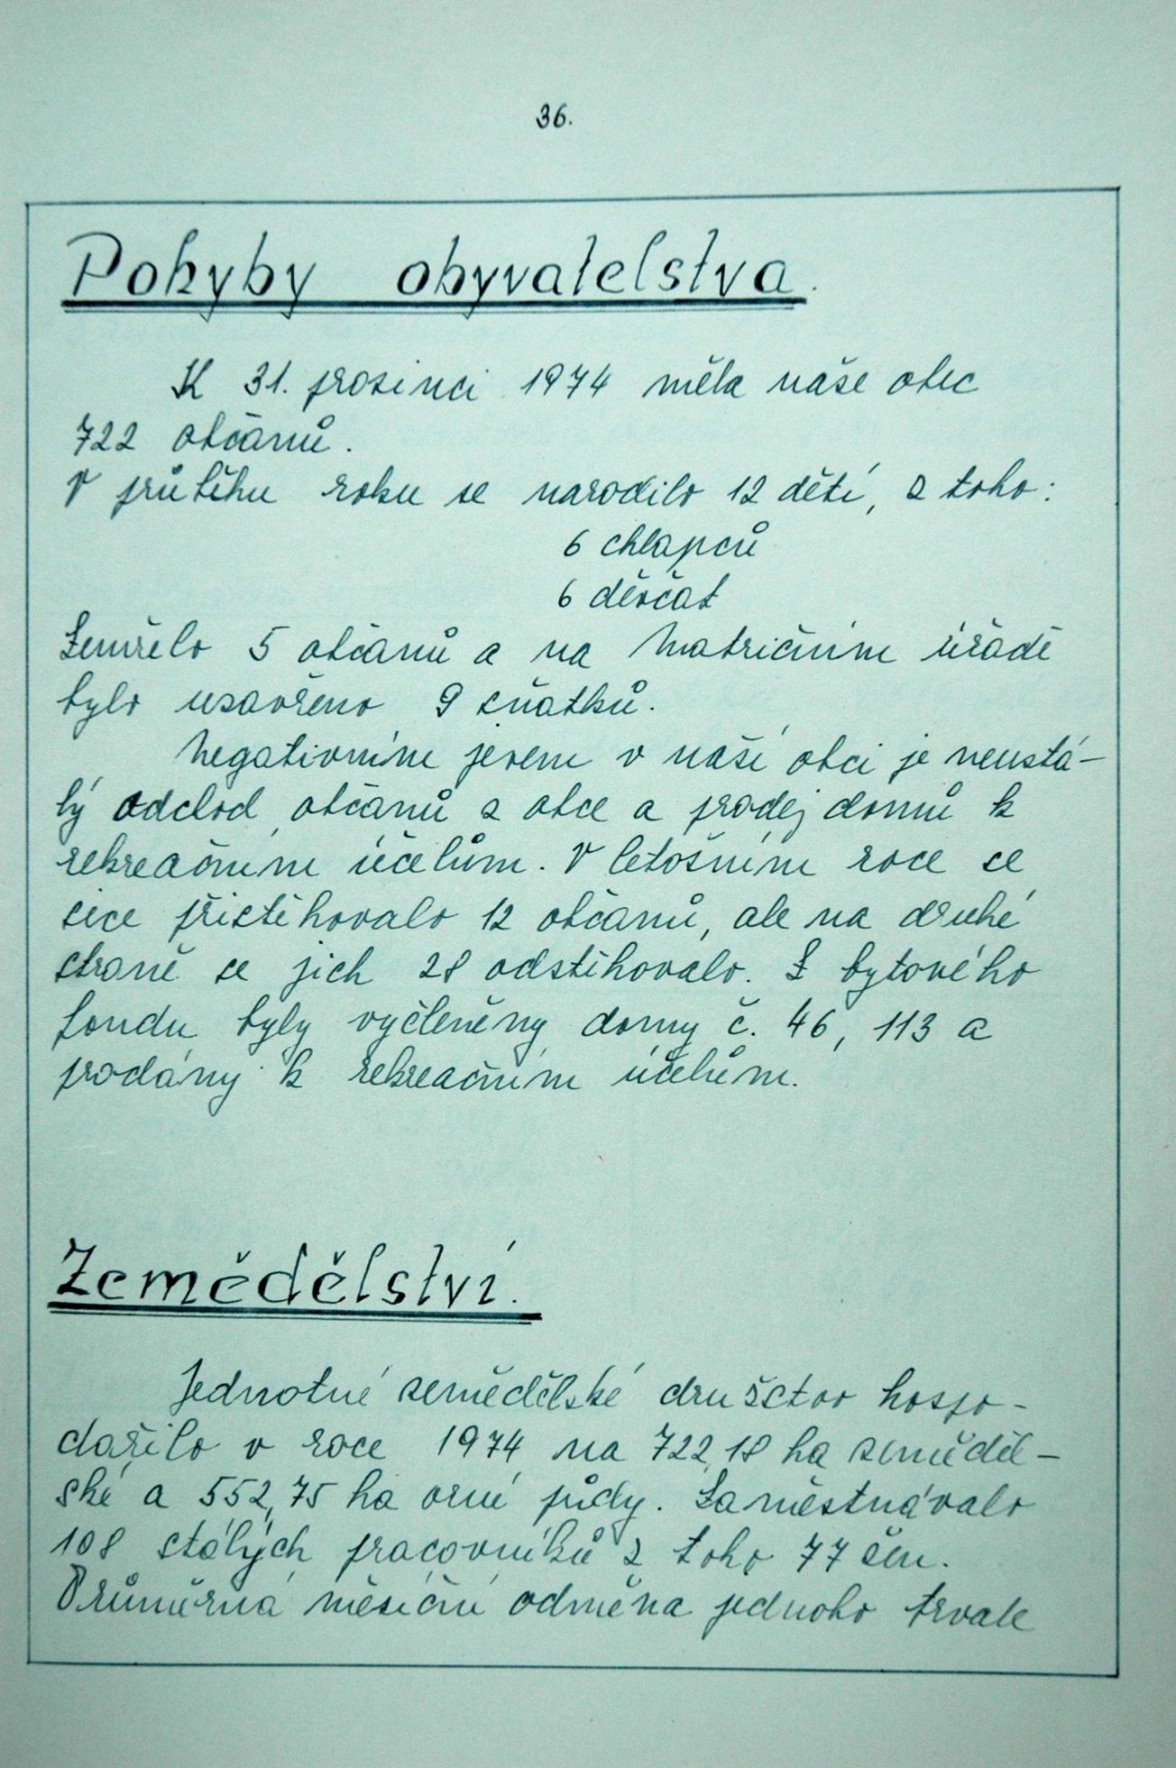 36.
Pohyby obyvatelstva.
K 31. prosinci 1974 měla naše obec
722 občanů.
V průběhu roku se narodilo 12 dětí, z toho:
6 chlapců
6 děvčat
Zemřelo 5 občanů a na Matričním úřadě
bylo uzavřeno 9 sňatků.
Negativním jevem v naší obci je neustá-
lý odchod občanů z obce a prodej domů k
rekreačním účelům. V letošním roce se
sice přistěhovalo 12 občanů, ale na druhé
straně se jich 28 odstěhovalo. Z bytového
fondu byly vyčleněny domy č. 46, 113 a
prodány k rekreačním účelům.
Zemědělství.
Jednotné zemědělské družstvo hospo-
dařilo v roce 1974 na 722,18 ha zeměděl-
ské a 552,75 ha orné půdy. Zaměstnávalo
108 stálých pracovníků z toho 77 žen.
Průměrná měsíční odměna jednoho trvale